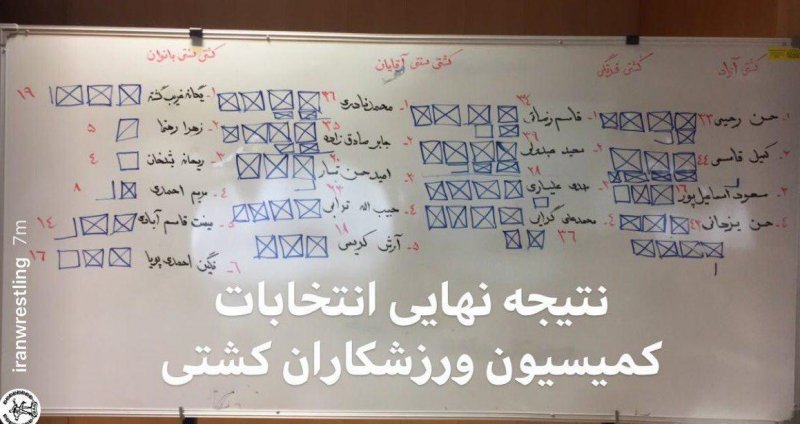 کشتی آزاد
۱- حسن رحیمی ۳۳
۲- کمیل قاسمی ۴۴
۳- مسعود اسماعیل‌پور ۱۶
۴- حسن یزدانی ۴۲
کشتی فرنگی
۳۴
۱- قاسم رضائی
۳۹
۲- سعید عبدولی
۲۸
۳- مهدی علیاری
۴- محمدعلی گرایی
۳۶
کشتی سنتی آقایان
۱- محمد نادری ۳۶
۳۵
۲- جابر صادق زاده
۲۰
۳- امید حسن تبار
۲۳
۴- حبیب اله ترابی
۱۸
۵- آرش کریمی
کشتی سنتی بانوان
۱- یگانه غریب ۱۹
۲- زهرا رهنما ۵
۳- ریحانه ۴
۴- مریم احمدی ۸
۵- بهشت قاسم آبادی ۱۴
۶- نگین احمدی پویا ۱۶
نتیجه نهایی انتخابات
کمیسیون ورزشکاران کشتی
iranwrestling 7m